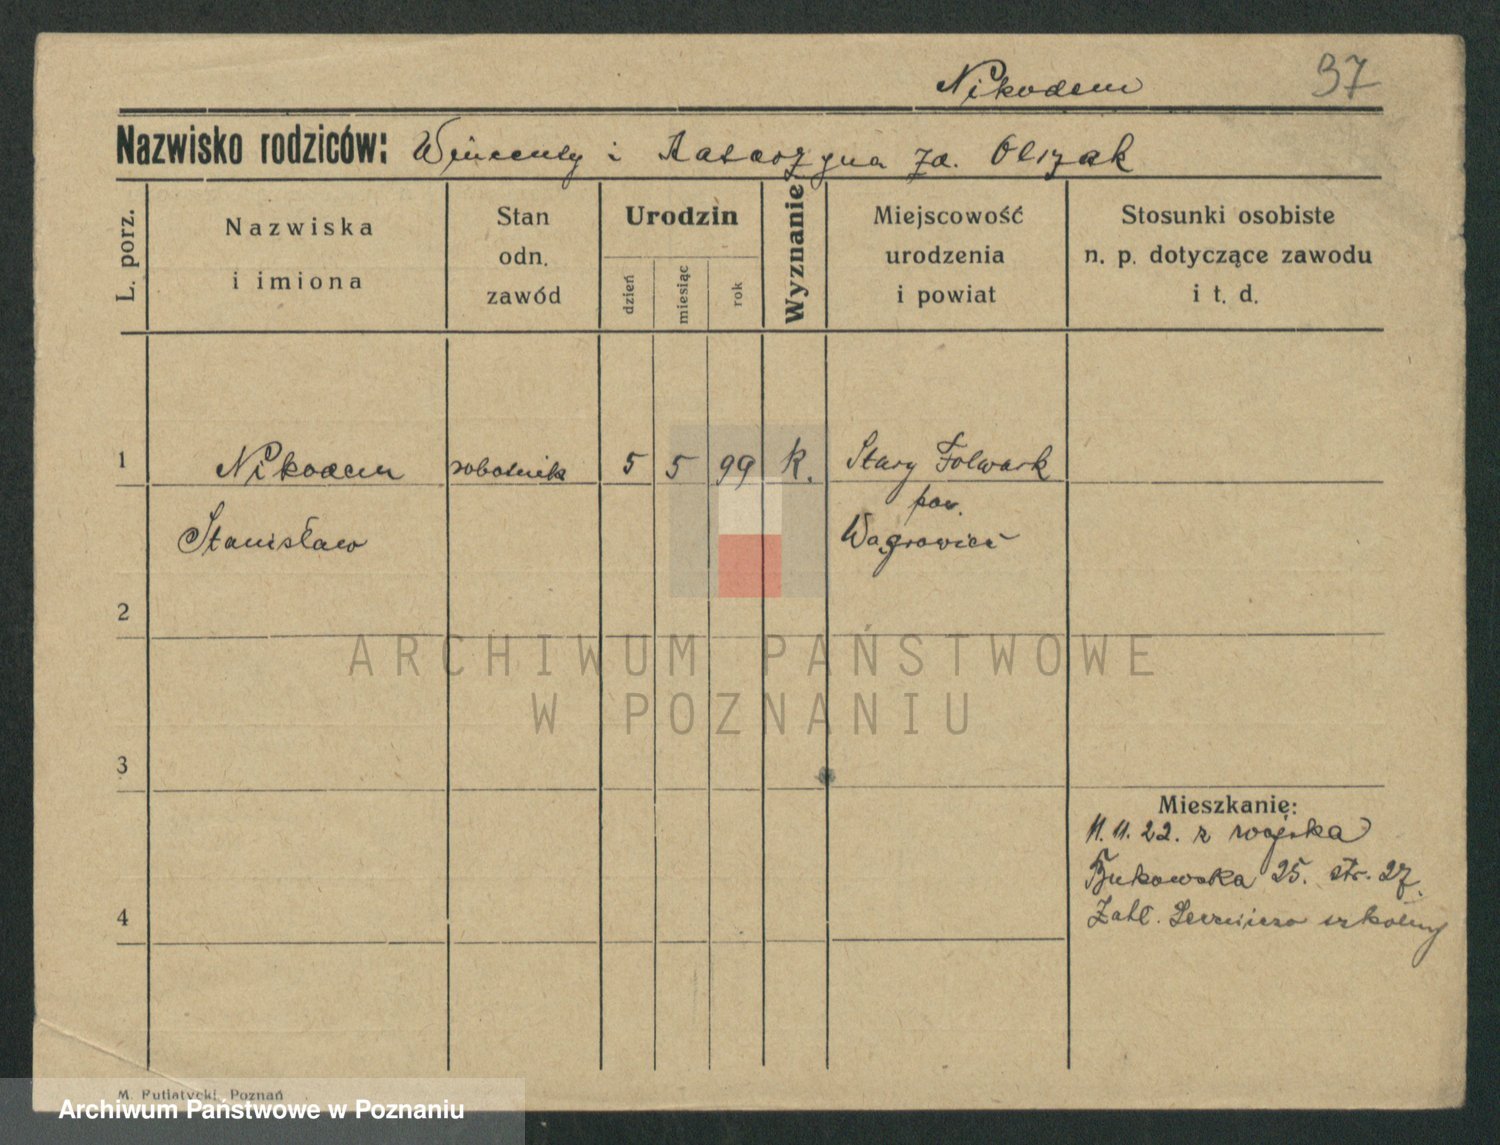 Nikodem 37
Nazwisko rodziców: Wincenty i Katarzyna zd. Olszak
L. porz.
Nazwiska
i imiona
Stan
odn.
zawód
Urodzin
dzień
miesiąc
rok
Wyznanie
Miejscowość
urodzenia
i powiat
Stosunki osobiste
n. p. dotyczące zawodu
i t. d.
1 Nikodem robotnik 5 5 99 k. Stary Folwark
pow.
Stanisław Wągrowiec
2
ARCHIWUM PAŃSTWOWE
W POZNANIU
3
Mieszkanie:
11.11.22. z wojska
Bukowska 25. str. 27.
4 Zakł. szkolny
M. Putiatycki, Poznań
Archiwum Państwowe w Poznaniu